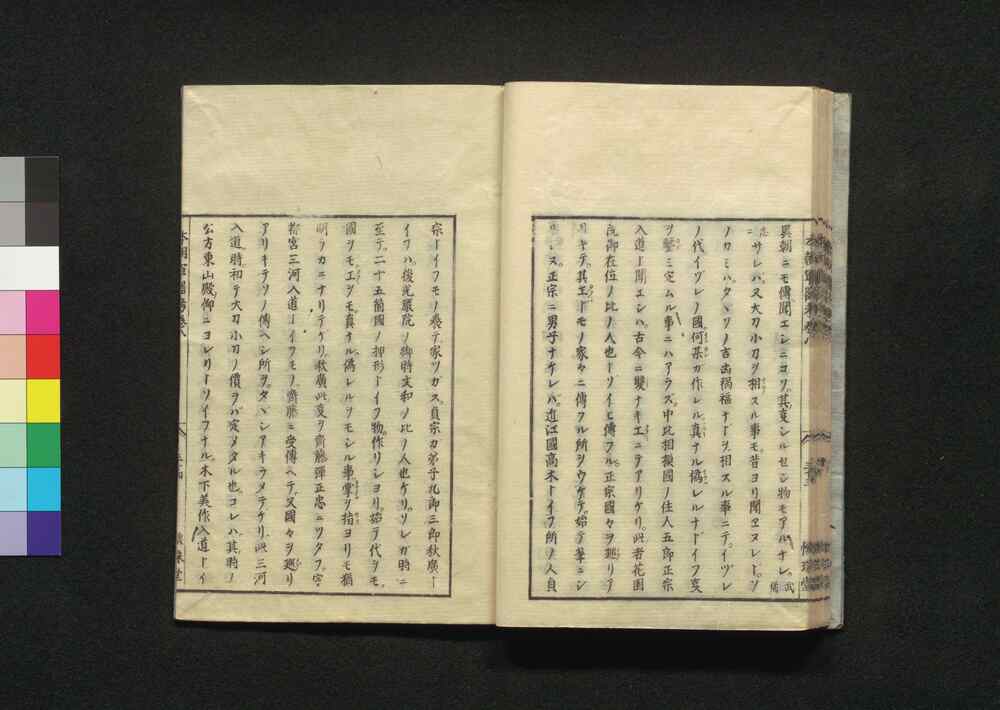 異朝ニモ傳聞エシニコソ。其変シルセシ物モアルナレ。武備
志 サレバ、又大刀小刀ヲ相スル事モ昔ヨリ聞ヱヌレドソ
ノカミハタヾソノ吉凶禍福ナドヲ相スル事ニテ、イヅレ
ノ代イヅレノ國何某ガ作レル真ナル偽レルナドイフ変
ヲ鑒ミ定ムル事ニハアラズ。中比相模國ノ住人五郎正宗
入道ト聞エシハ、古今ニ雙ナキエニテアリケリ。此者花園
院御在位ノ比ノ人也トゾイヒ傳フル。正宗國々ヲ廻リア
リキテ、其工ドモノ家々ニ傳フル所ヲウケテ、始テ筆ニシ
ス。正宗ニ男子ナケレバ、近江國高木トイフ所ノ人貞
宗トイフモノ養テ家ツガス。貞宗カ弟子九郎三郎秋廣ト
イフハ、後光嚴院ノ御時文和ノ比ノ人也ケリ。ソレガ時ニ
至テ、二十五箇國ノ押形トイフ物作リシヨリ、始テ代ヲモ、
國ヲモ、工ヲモ、真ナル、偽レルヲモシル事、掌ヲ指ヨリモ猶
明ラカニナリテケリ。秋廣此変ヲ齋藤彈正忠ニツタフ。宇
都宮三河入道トイフモノ、齋藤ニ受傳ヘテ、又國々ヲ廻リ
アリキテ、ソノ傳ヘシ所ヲ、タヾシアキラメテケリ。此三河
入道時初テ大刀小刀ノ價ヲバ定メタル也。コレハ其時ノ
公方東山殿ノ仰ニヨレリトソイフナル。木下美作入道トイ